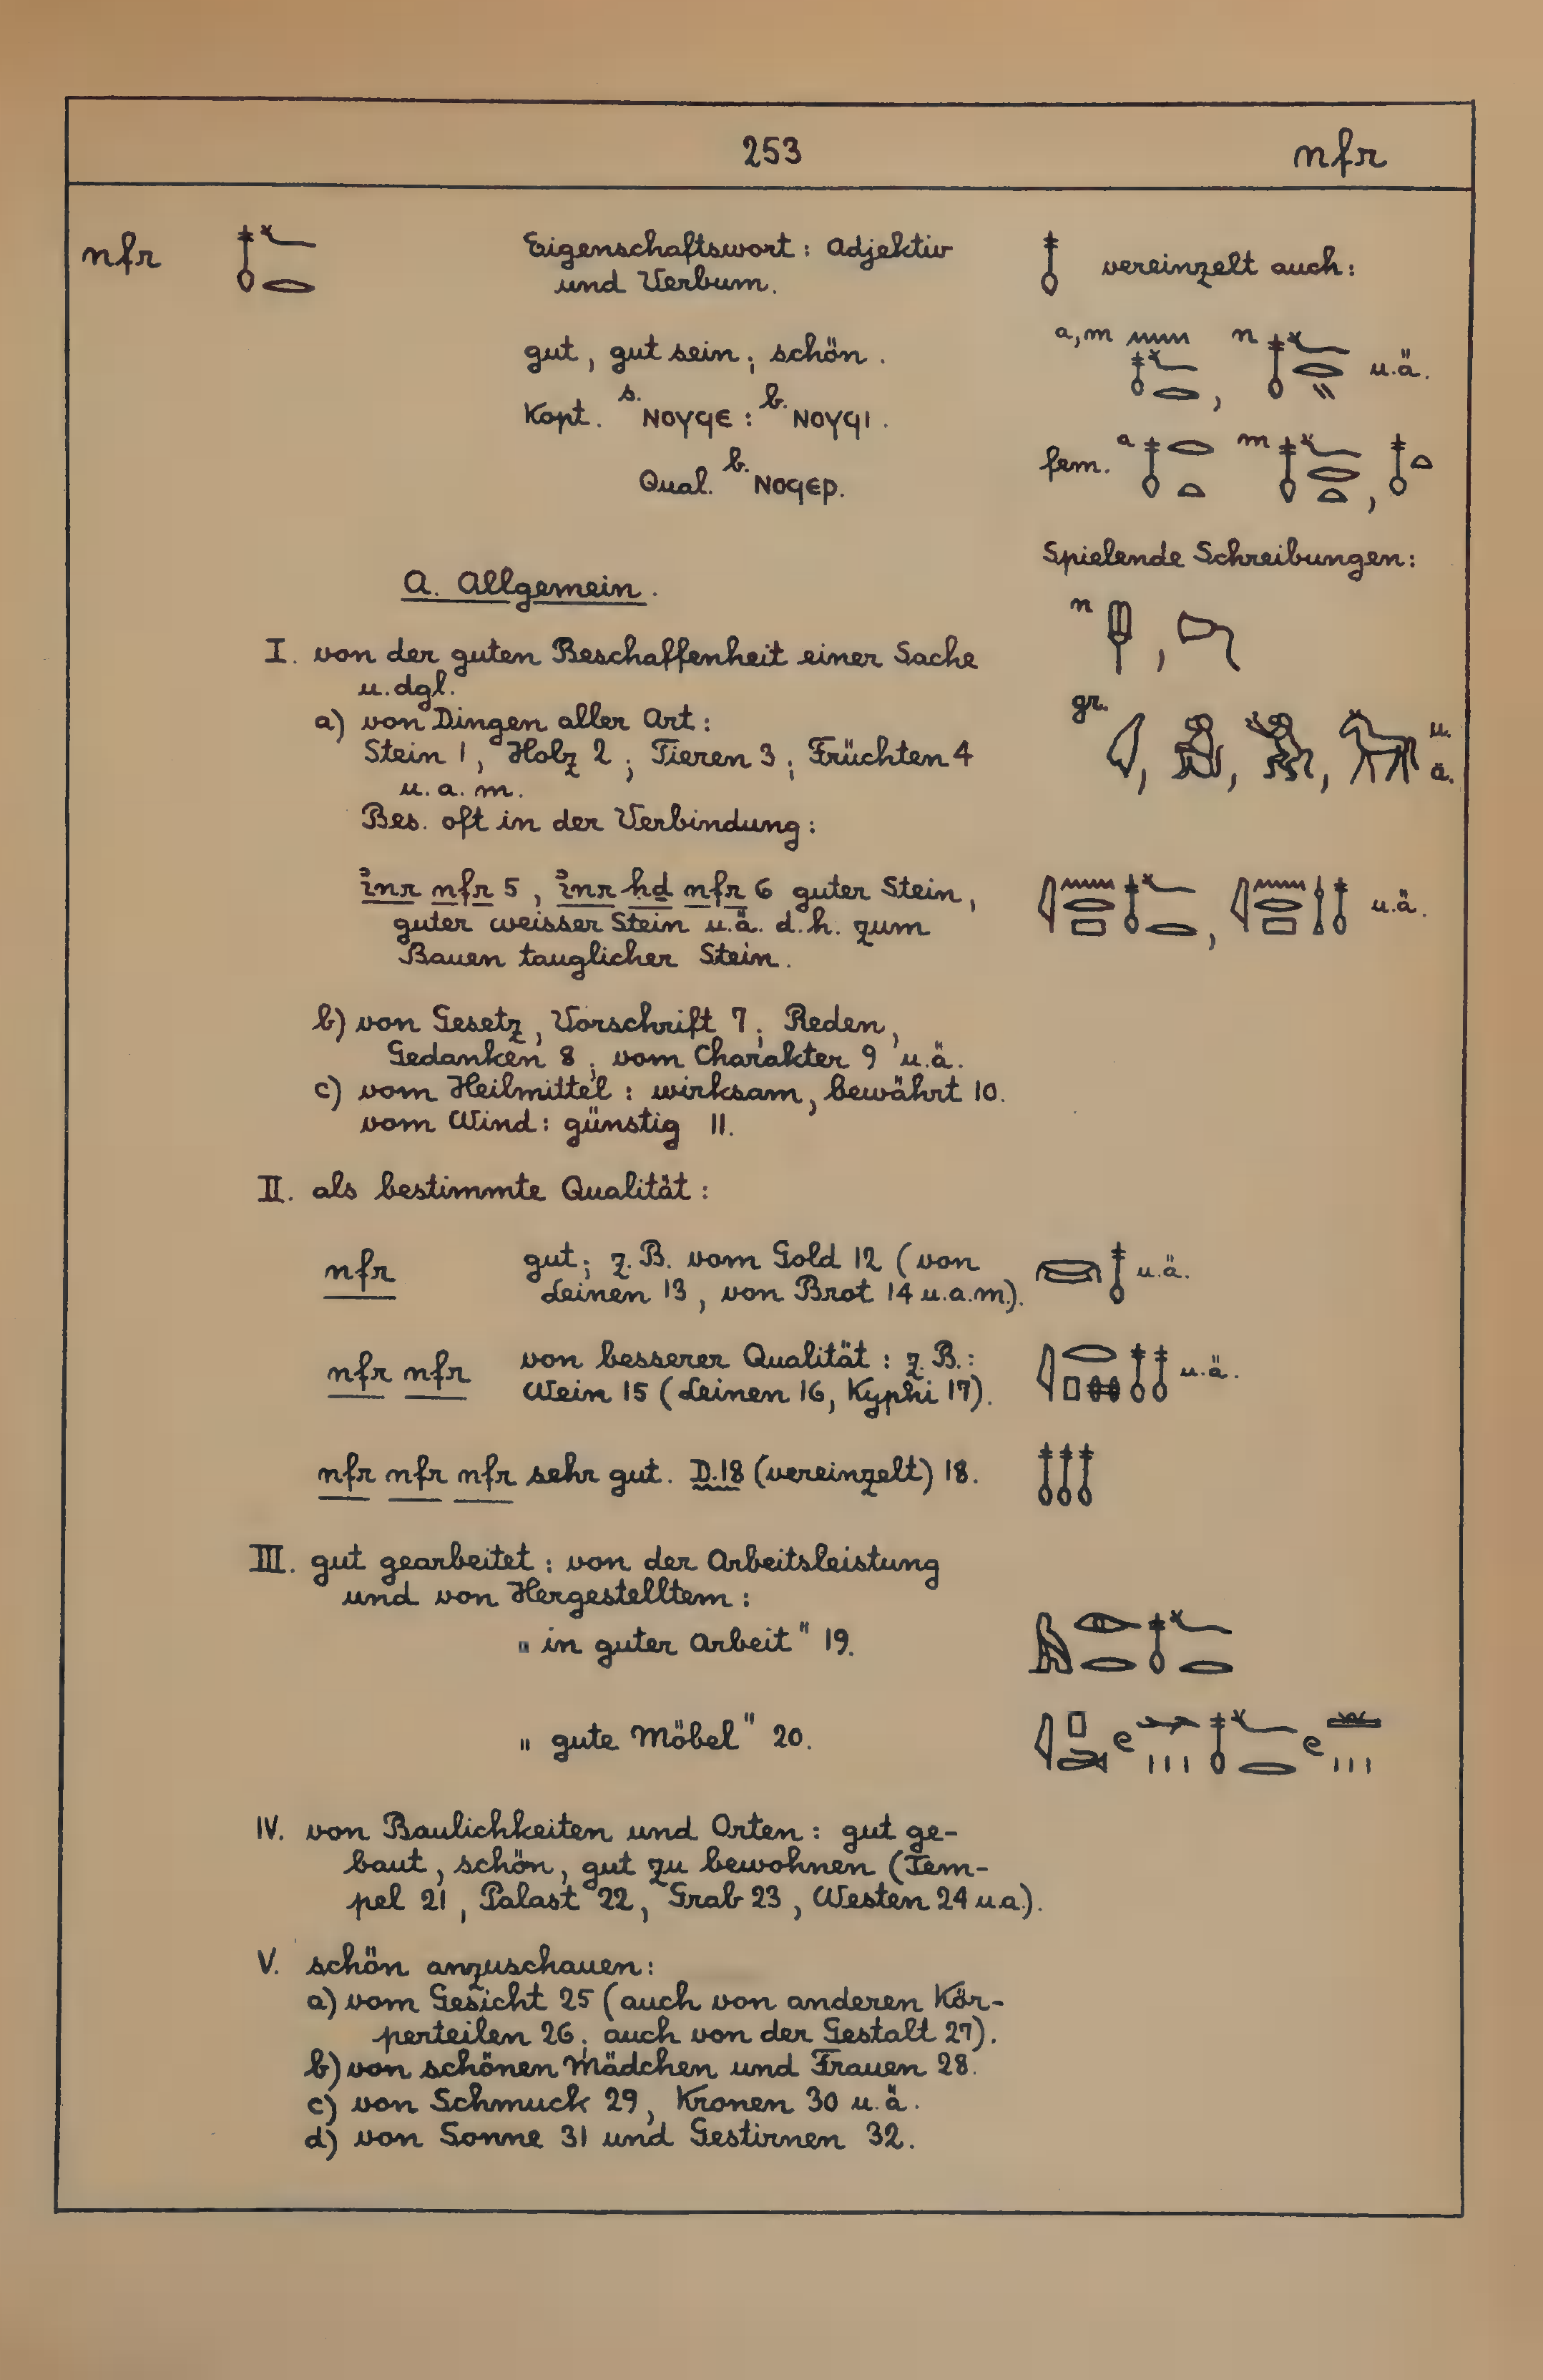 253 nfr
nfr 𓄤𓆑𓂋 Eigenschaftswort: Adjektiv 𓄤 vereinzelt auch:
und Verbum.
gut, gut sein; schön. a,m 𓈖𓄤𓆑𓂋, n 𓄤𓆑𓂋𓏭 u.ä.
Kopt. s. ⲛⲟⲩϥⲉ : b. ⲛⲟⲩϥⲓ.
Qual. b. ⲛⲟϥⲉⲣ. fem. a 𓄤𓂋𓏏 m 𓄤𓆑𓂋𓏏, 𓄤𓏏
Spielende Schreibungen:
A. Allgemein.
n
I. von der guten Beschaffenheit einer Sache
u.dgl.
gr. u.ä.
a) von Dingen aller Art:
Stein 1, Holz 2; Tieren 3; Früchten 4
u.a.m.
Bes. oft in der Verbindung:
i͗nr nfr 5, i͗nr ḥḏ nfr 6 guter Stein, 𓇋𓈖𓂋𓈙𓄤𓆑𓂋, 𓇋𓈖𓂋𓈙𓌉𓄤 u.ä.
guter weisser Stein u.ä. d.h. zum
Bauen tauglicher Stein.
b) von Gesetz, Vorschrift 7; Reden,
Gedanken 8; vom Charakter 9 u.ä.
c) vom Heilmittel: wirksam, bewährt 10.
vom Wind: günstig 11.
II. als bestimmte Qualität:
nfr gut; z.B. vom Gold 12 (von 𓋞𓄤 u.ä.
Leinen 13, von Brot 14 u.a.m.).
nfr nfr von besserer Qualität: z.B.: 𓇋𓂋𓊪𓏊𓄤𓄤 u.ä.
Wein 15 (Leinen 16, Kyphi 17).
nfr nfr nfr sehr gut. D.18 (vereinzelt) 18. 𓄤𓄤𓄤
III. gut gearbeitet: von der Arbeitsleistung
und von Hergestelltem:
"in guter Arbeit" 19. 𓅓𓁹𓂋𓄤𓆑𓂋
"gute Möbel" 20.
IV. von Baulichkeiten und Orten: gut ge-
baut, schön, gut zu bewohnen (Tem-
pel 21, Palast 22, Grab 23, Westen 24 u.a.).
V. schön anzuschauen:
a) vom Gesicht 25 (auch von anderen Kör-
perteilen 26; auch von der Gestalt 27).
b) von schönen Mädchen und Frauen 28.
c) von Schmuck 29, Kronen 30 u.ä.
d) von Sonne 31 und Gestirnen 32.